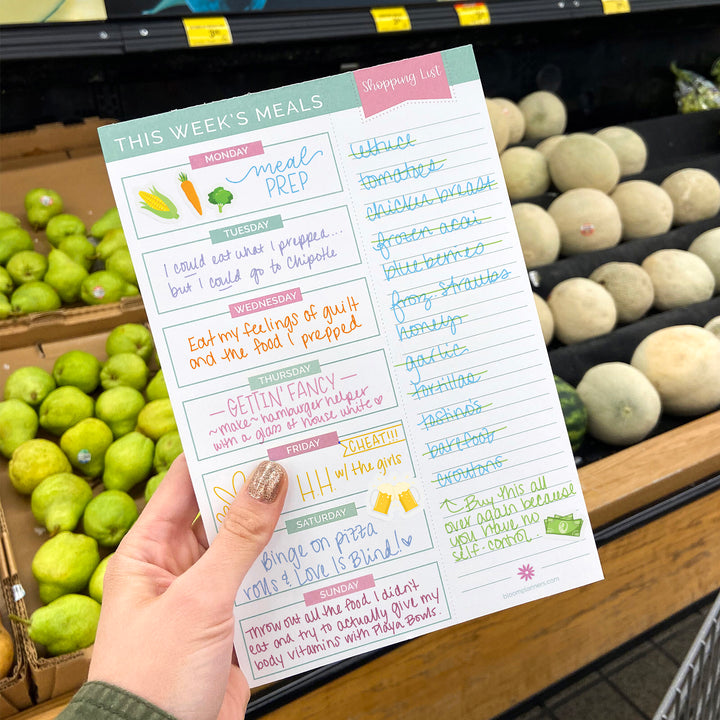 THIS WEEK'S MEALS
MONDAY
meal
PREP
TUESDAY
I could eat what I prepped...
but I could go to Chipotle
WEDNESDAY
Eat my feelings of guilt
and the food I prepped
THURSDAY
—GETTIN' FANCY—
~make~hamburger helper
with a glass of house white
FRIDAY
CHEAT!!!
H.H w/the girls
SATURDAY
Binge on pizza
rolls & Love Is Blind!
SUNDAY
Throw out all the food I didn't
eat and try to actually give my
body vitamins with Playa Bowls.
Shopping List
lettuce
tomatoes
chicken breast
frozen acai
blueberries
froz strawbs
honey
garlic
tortillas
tostino's
barefoot
croutons
Buy this all
over again because
you have no
self-control.
bloomplanners.com